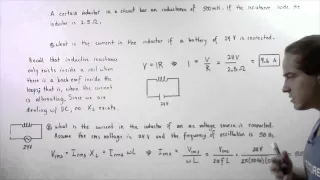 An inductor in a circuit has an inductance of 500 mH. If the resistance inside the
inductor is 2.5 Ω
What is the current in the inductor if a battery of 24 V is connected.
Recall that inductive reactance
only exists inside a coil when
there is a back emf inside the
loop; that is, when the current
is alternating. Since we are
dealing w/ DC, no XL exists.
V = IR ⇒ I = V/R = 24V/2.5 Ω = 9.6 A
24V
What is the current in the inductor if an ac voltage source is connected.
Assume the rms voltage is 24 V and the frequency of oscillation is 50 Hz.
Vrms = Irms XL = Irms ωL ⇒ Irms = Vrms/ωL = Vrms/2πfL = 24V
24V